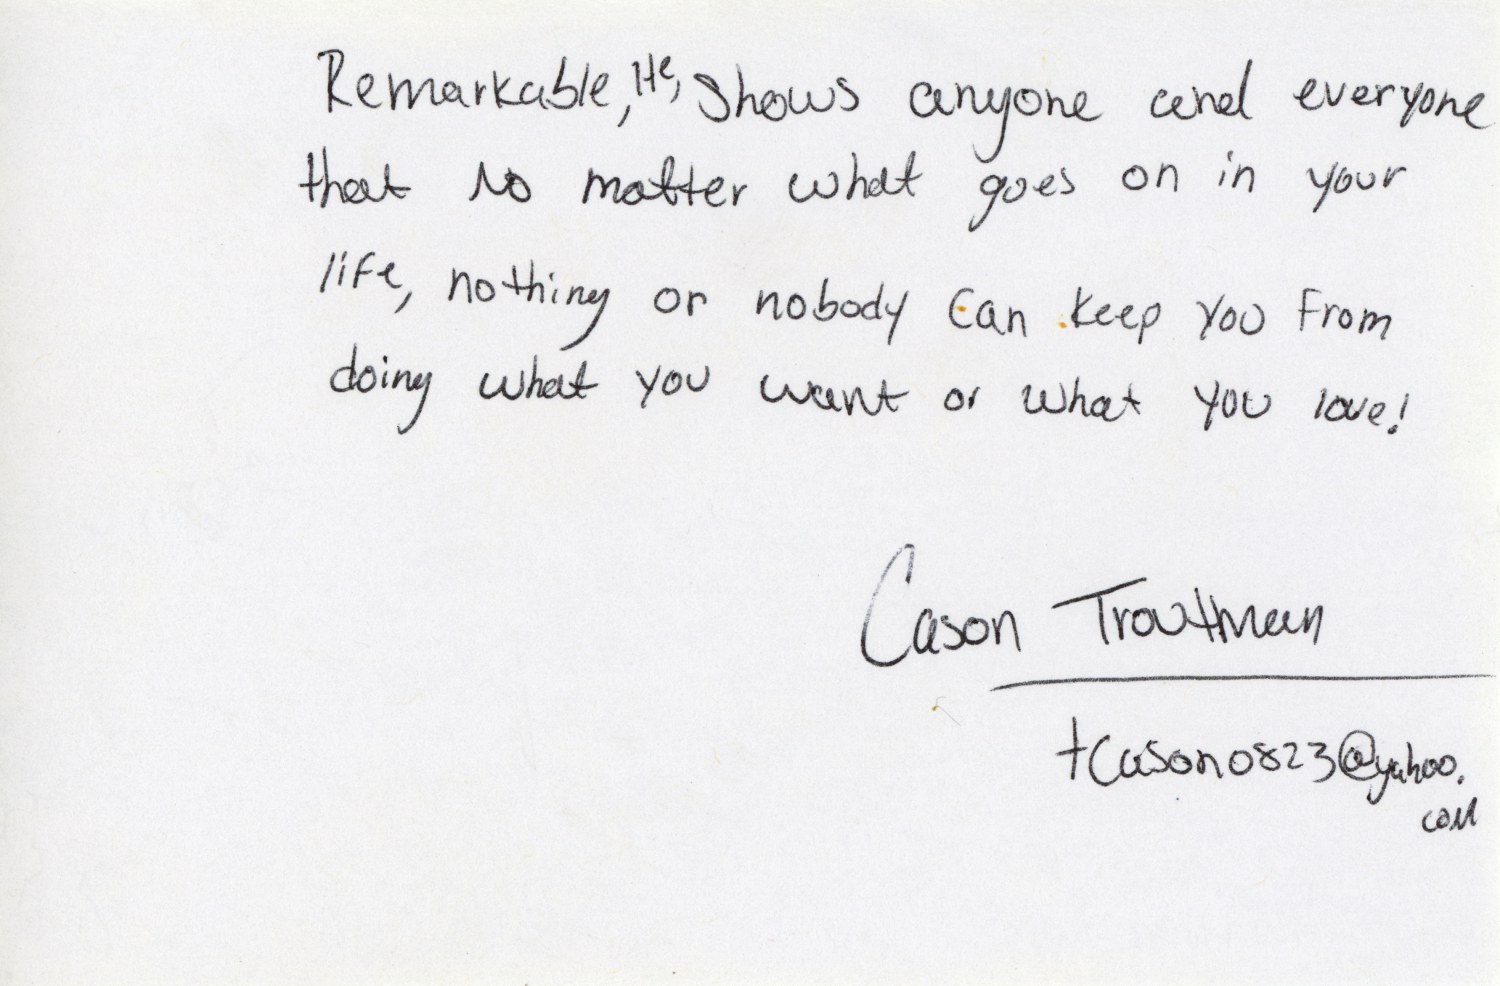 Remarkable, He, shows anyone and everyone
that No matter what goes on in your
life, nothing or nobody Can keep you from
doing what you want or what you love!
Cason Troutman
tcason0823@yahoo.
com